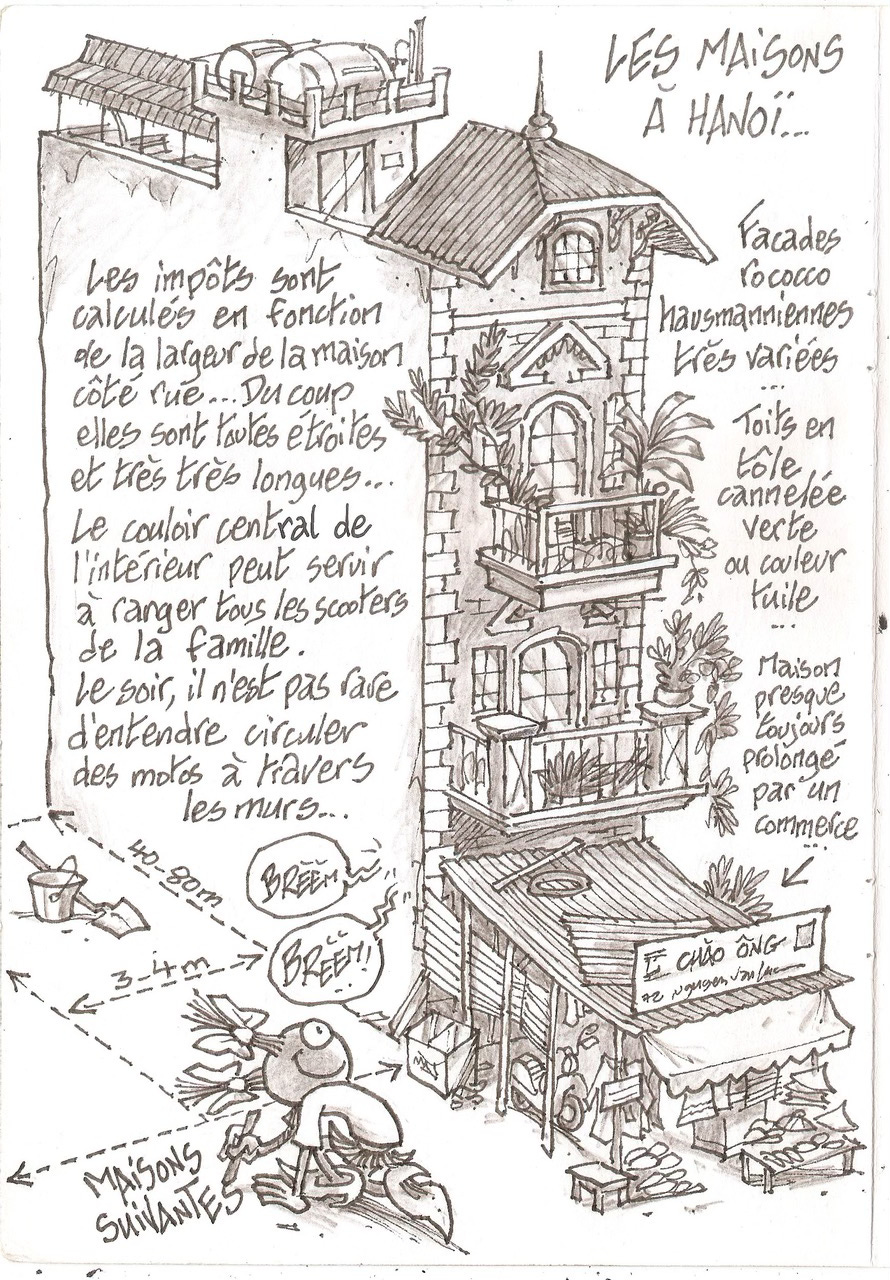 LES MAISONS
À HANOÏ...
Facades
rococco
hausmanniennes
très variées
...
Toits en
tôle
cannelée
verte
ou couleur
tuile
...
Maison
presque
toujours
prolongé
par un
commerce
...
Les impôts sont
calculés en fonction
de la largeur de la maison
côté rue... Du coup
elles sont toutes étroites
et très très longues...
Le couloir central de
l'intérieur peut servir
à ranger tous les scooters
de la famille.
Le soir, il n'est pas rare
d'entendre circuler
des motos à travers
les murs...
40-80m
3-4m
BRËËM
BRËËM!
CHÃO ÔNG
MAISONS
SUIVANTES